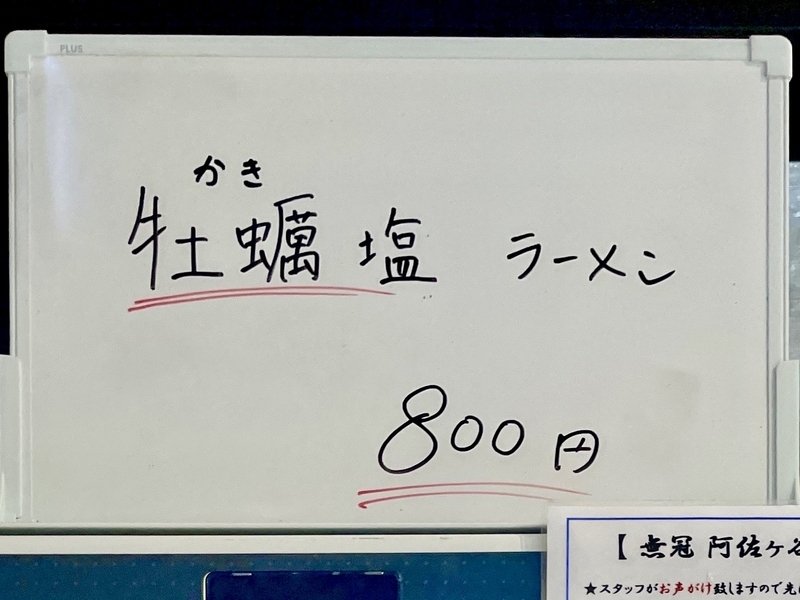 PLUS
かき
牡蠣塩 ラーメン
800円
【無冠 阿佐ヶ谷
★スタッフがお声がけ致しますので先に